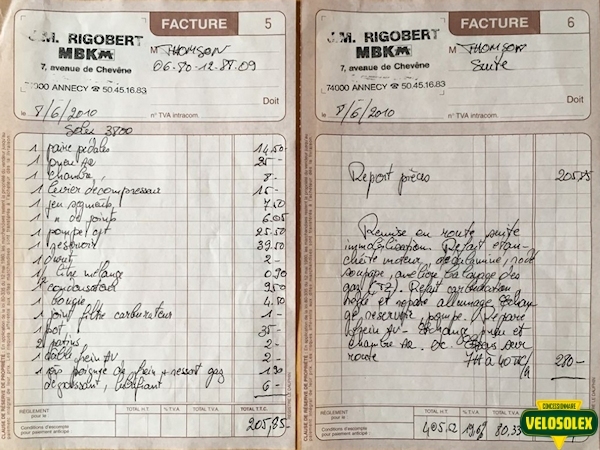 FACTURE 5
J.M. RIGOBERT
MBK
7, avenue de Chevêne
74000 ANNECY ☎ 50.45.16.83
M THOMSON
06-80-12-88-09
Doit
le 8/6/2010 n° TVA intracom.
Solex 3800
1 paire pédales 14.50
1 pneu AR 25-
1 chambre 8-
1 levier décompresseur 15-
1 jeu segments 7.50
1 " de joints 6.05
1 pompe 25.50
1 reservoir 39.50
1 2-
1/2 litre mélange 0.90
1 condensateur 9.50
1 bougie 4.50
1 joint filtre carburateur 1-
1 pot 35-
2 patins 2-
1 cable frein AV 2-
1 poignée frein ressort gaz 1.90
degrippant, lubrifiant 6-
RÈGLEMENT
pour le
Conditions d'escompte
pour paiement anticipé :
TOTAL H.T. % T.V.A. TOTAL T.V.A. TOTAL T.T.C.
205,85-
CLAUSE DE RÉSERVE DE PROPRIÉTÉ
FACTURE 6
J.M. RIGOBERT
MBK
7, avenue de Chevêne
74000 ANNECY ☎ 50.45.16.83
M THOMSON
Suite
Doit
le 8/6/2010 n° TVA intracom.
Report pièces 205.85
Remise en route suite
immobilisation. Refait étan-
chéité moteur, décalaminé, rodé
soupape, amélioré balayage des
gaz. Refait carburation
et réparé allumage. Echan-
ge reservoir, pompe. Réparé
frein AV - Echange pneu et
chambre AR. etc. Essais sur
route 7H à 40 TTC/H 280-
RÈGLEMENT
pour le
Conditions d'escompte
pour paiement anticipé :
TOTAL H.T. % T.V.A. TOTAL T.V.A.
405.52 19,6% 80,33
CONCESSIONNAIRE
VELOSOLEX